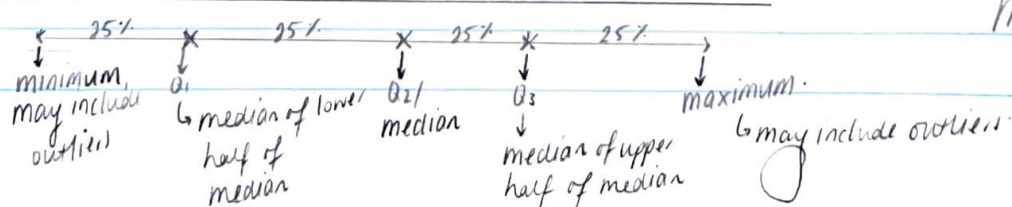 25% 25% 25% 25%
minimum,
may include
outliers
Q1
↳ median of lower
half of
median
Q2/
median
Q3
median of upper
half of median
maximum.
↳ may include outliers